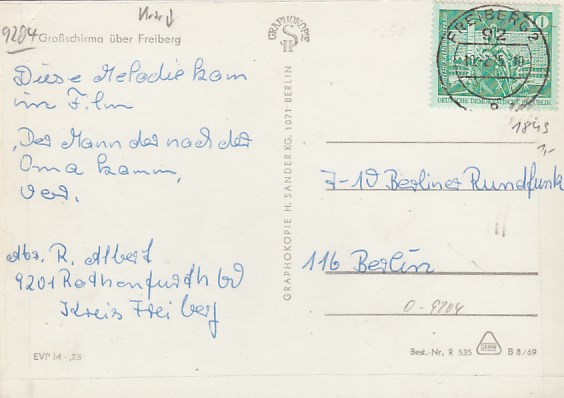 9204
Großschirma über Freiberg
Diese Melodie kam
im Film
"Der Mann der nach der
Oma kamm,
vor.
Abs. R. Albert
9201 Rothenfurth bd
Kreis Freiberg
EVP M -,25
GRAPHOKOPIE
GRAPHOKOPIE H. SANDER KG. 1071 BERLIN
FREIBERG 2
92
10
DEUTSCHE DEMOKRATISCHE REPUBLIK
1843
1,-
7-10 Berliner Rundfunk
116 Berlin
0-9204
Best.-Nr. R 535
B 8/69